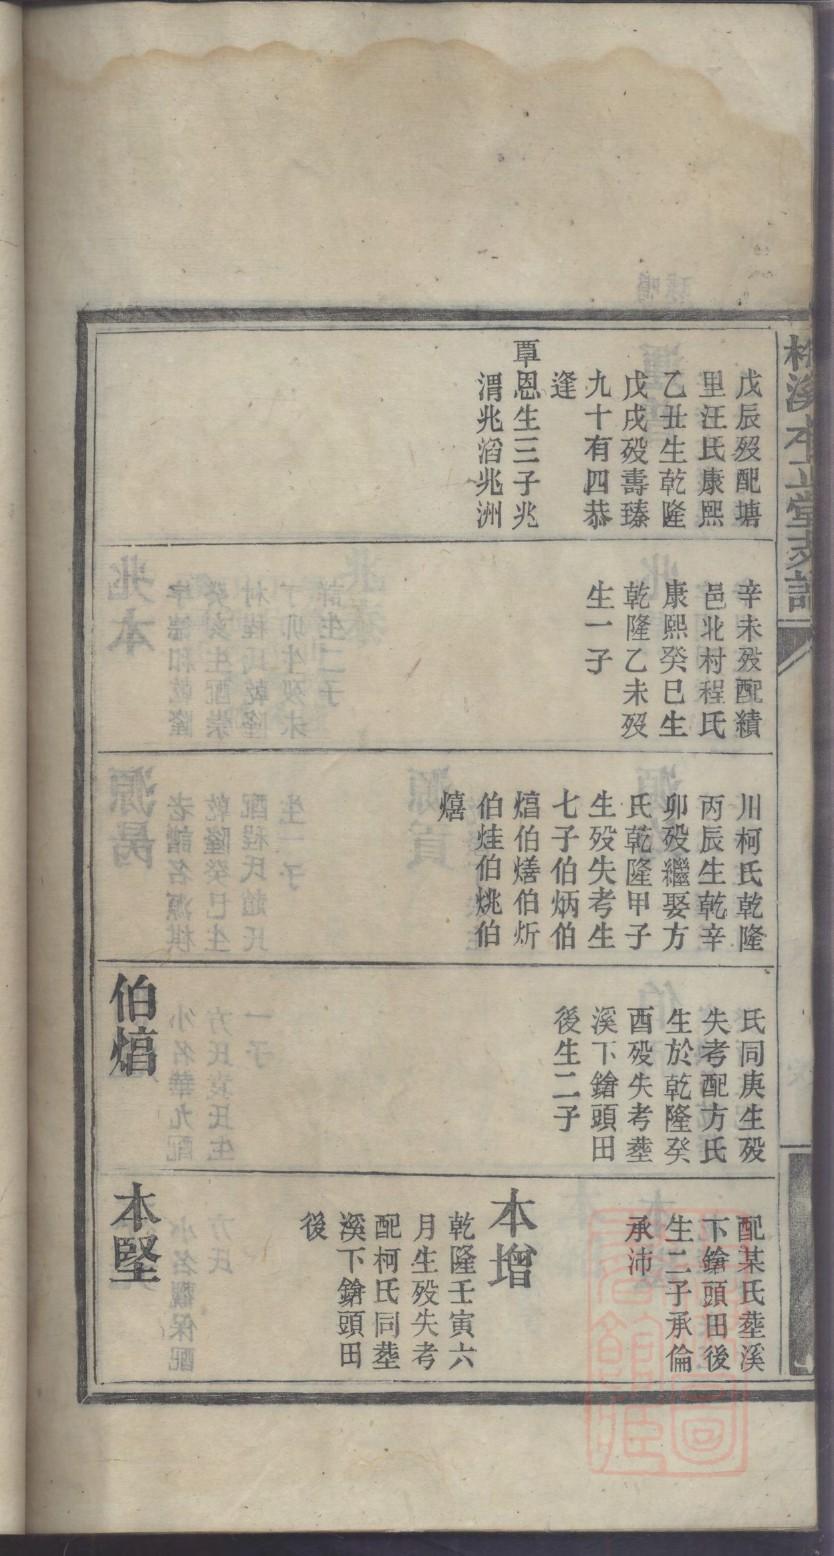 戊辰歿配塘
里汪氏康熙
乙丑生乾隆
戊戌歿壽臻
九十有四恭
逢
覃恩生三子兆
渭兆滔兆洲
辛未歿配績
邑北村程氏
康熙癸巳生
乾隆乙未歿
生一子
川柯氏乾隆
丙辰生乾辛
卯歿繼娶方
氏乾隆甲子
生歿失考生
七子伯炳伯
熺伯熺伯炘
伯烓伯烑伯
熺
氏同庚生歿
失考配方氏
生於乾隆癸
酉歿失考塟
溪下鎗頭田
後生二子
伯熺
配某氏塟溪
下鎗頭田後
生二子承倫
承沛
本增
乾隆壬寅六
月生歿失考
配柯氏同塟
溪下鎗頭田
後
本堅